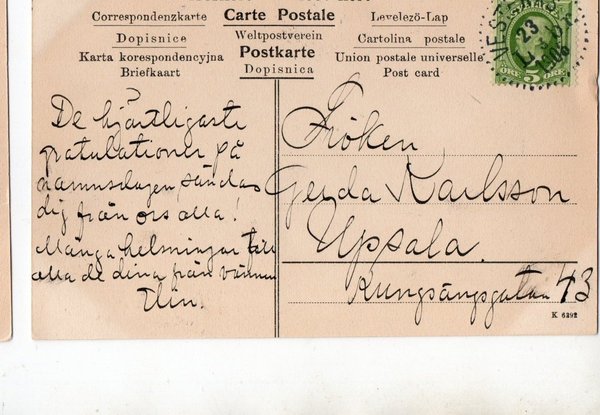 Correspondenzkarte Carte Postale Levelező-Lap
Dopisnice Weltpostverein Cartolina postale
Karta korespondencyjna Postkarte Union postale universelle
Briefkaart Dopisnica Post card
23
1908
5 ÖRE 5
De hjärtligaste
gratulationer på
namnsdagen, sändas
dig från oss alla!
Många helsningar till
alla de dina från vännen
Elin.
Fröken
Gerda Karlsson
Uppsala.
Kungsängsgatan 43
K 6392